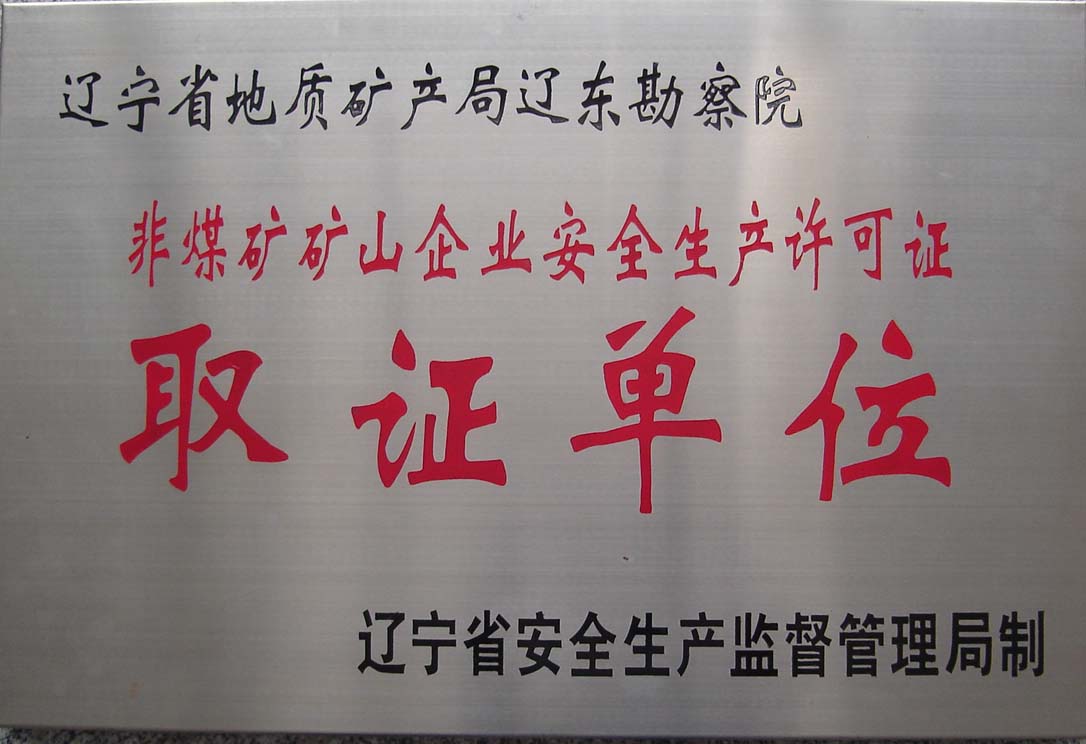 辽宁省地质矿产局辽东勘察院
非煤矿矿山企业安全生产许可证
取证单位
辽宁省安全生产监督管理局制